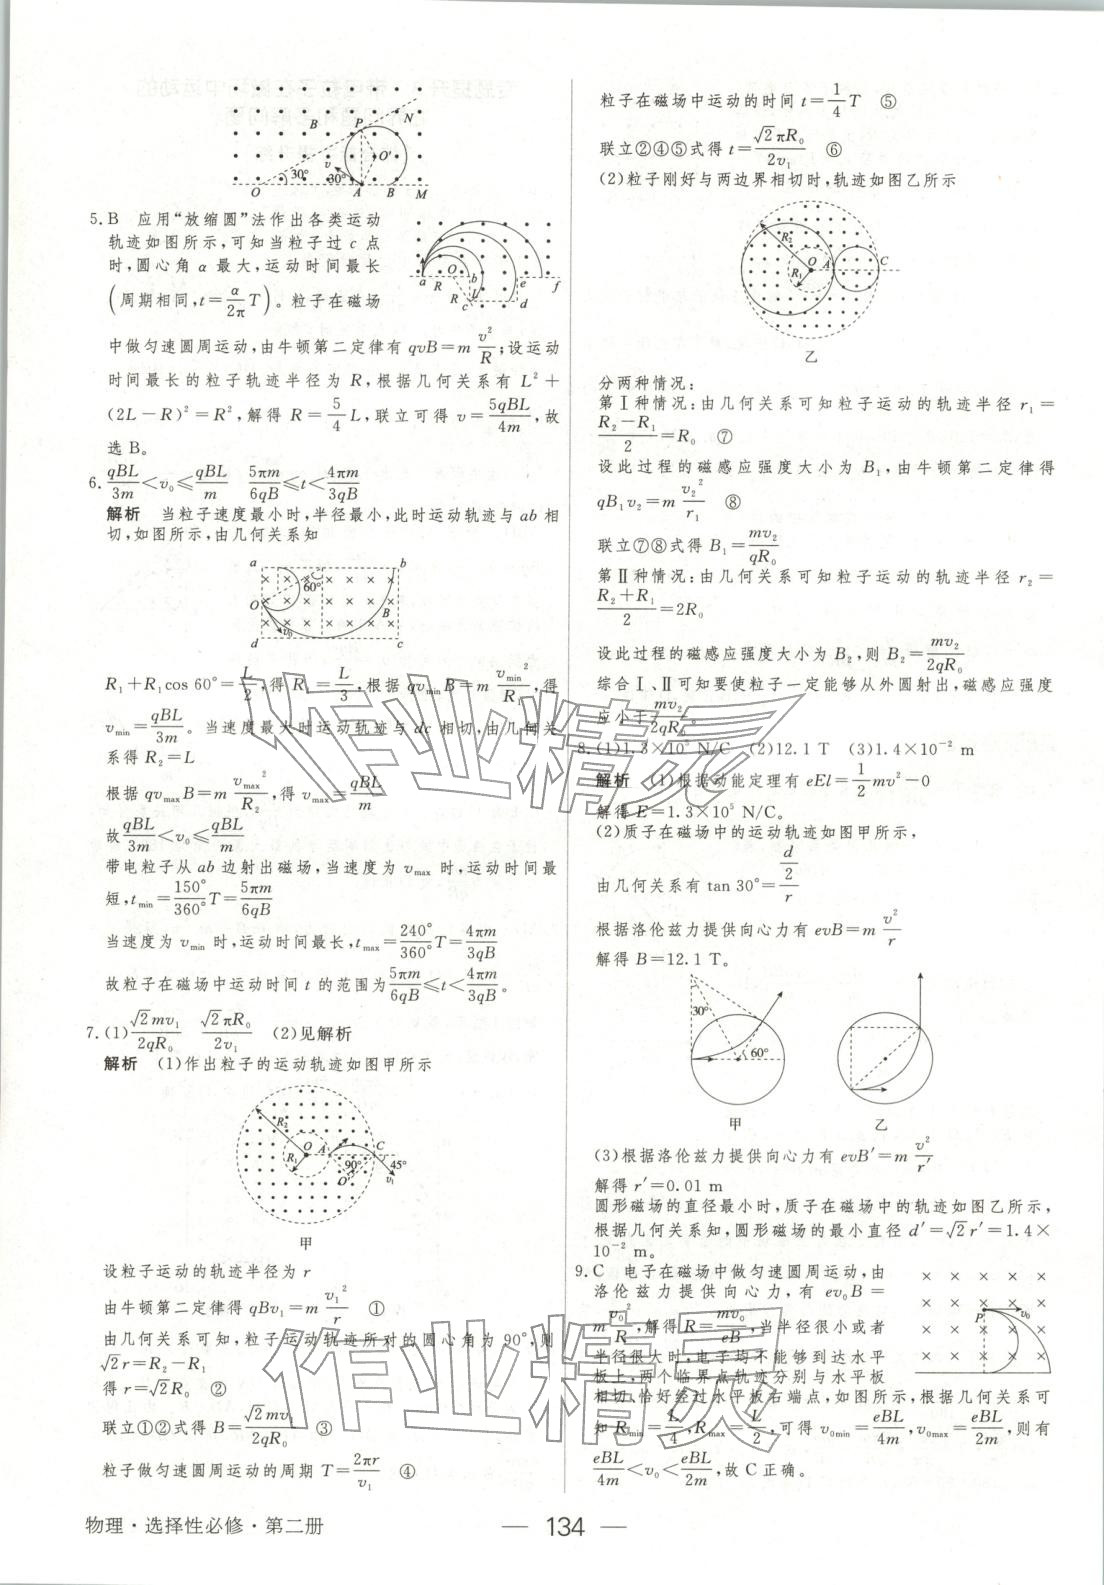 5. B　应用“放缩圆”法作出各类运动
轨迹如图所示,可知当粒子过 c 点
时,圆心角 α 最大,运动时间最长
(周期相同,t=α/2π T)。粒子在磁场
中做匀速圆周运动,由牛顿第二定律有 qvB=m v²/R;设运动
时间最长的粒子轨迹半径为 R,根据几何关系有 L²+
(2L-R)²=R²,解得 R=5/4 L,联立可得 v=5qBL/4m,故
选 B。
6. qBL/3m<v₀≤qBL/m　5πm/6qB≤t<4πm/3qB
解析　当粒子速度最小时,半径最小,此时运动轨迹与 ab 相
切,如图所示,由几何关系知
R₁+R₁cos 60°=L/2,得 R₁=L/3,根据 qv_min B=m v_min²/R₁,得
v_min=qBL/3m。当速度最大时运动轨迹与 dc 相切,由几何关
系得 R₂=L
根据 qv_max B=m v_max²/R₂,得 v_max=qBL/m
故 qBL/3m<v₀≤qBL/m
带电粒子从 ab 边射出磁场,当速度为 v_max 时,运动时间最
短,t_min=150°/360° T=5πm/6qB
当速度为 v_min 时,运动时间最长,t_max=240°/360° T=4πm/3qB
故粒子在磁场中运动时间 t 的范围为 5πm/6qB≤t<4πm/3qB。
7. (1)√2mv₁/2qR₀　√2πR₀/2v₁　(2)见解析
解析　(1)作出粒子的运动轨迹如图甲所示
甲
设粒子运动的轨迹半径为 r
由牛顿第二定律得 qBv₁=m v₁²/r　①
由几何关系可知,粒子运动轨迹所对的圆心角为 90°,则
√2r=R₂-R₁
得 r=√2R₀　②
联立①②式得 B=√2mv₁/2qR₀　③
粒子做匀速圆周运动的周期 T=2πr/v₁　④
粒子在磁场中运动的时间 t=1/4 T　⑤
联立②④⑤式得 t=√2πR₀/2v₁　⑥
(2)粒子刚好与两边界相切时,轨迹如图乙所示
乙
分两种情况:
第Ⅰ种情况:由几何关系可知粒子运动的轨迹半径 r₁=
R₂-R₁/2=R₀　⑦
设此过程的磁感应强度大小为 B₁,由牛顿第二定律得
qB₁v₂=m v₂²/r₁　⑧
联立⑦⑧式得 B₁=mv₂/qR₀
第Ⅱ种情况:由几何关系可知粒子运动的轨迹半径 r₂=
R₂+R₁/2=2R₀
设此过程的磁感应强度大小为 B₂,则 B₂=mv₂/2qR₀
综合Ⅰ、Ⅱ可知要使粒子一定能够从外圆射出,磁感应强度
应小于 mv₂/2qR₀。
8. (1)1.3×10⁵ N/C　(2)12.1 T　(3)1.4×10⁻² m
解析　(1)根据动能定理有 eEl=1/2 mv²-0
解得 E=1.3×10⁵ N/C。
(2)质子在磁场中的运动轨迹如图甲所示,
由几何关系有 tan 30°=(d/2)/r
根据洛伦兹力提供向心力有 evB=m v²/r
解得 B=12.1 T。
甲　乙
(3)根据洛伦兹力提供向心力有 evB′=m v²/r′
解得 r′=0.01 m
圆形磁场的直径最小时,质子在磁场中的轨迹如图乙所示,
根据几何关系知,圆形磁场的最小直径 d′=√2r′=1.4×
10⁻² m。
9. C　电子在磁场中做匀速圆周运动,由
洛伦兹力提供向心力,有 ev₀B=
m v₀²/R,解得 R=mv₀/eB,当半径很小或者
半径很大时,电子均不能够到达水平
板上,两个临界点轨迹分别与水平板
相切、恰好经过水平板右端点,如图所示,根据几何关系可
知 R_min=L/4,R_max=L/2,可得 v₀min=eBL/4m,v₀max=eBL/2m,则有
eBL/4m<v₀<eBL/2m,故 C 正确。
物理·选择性必修·第二册
— 134 —
作业精灵
作业精灵